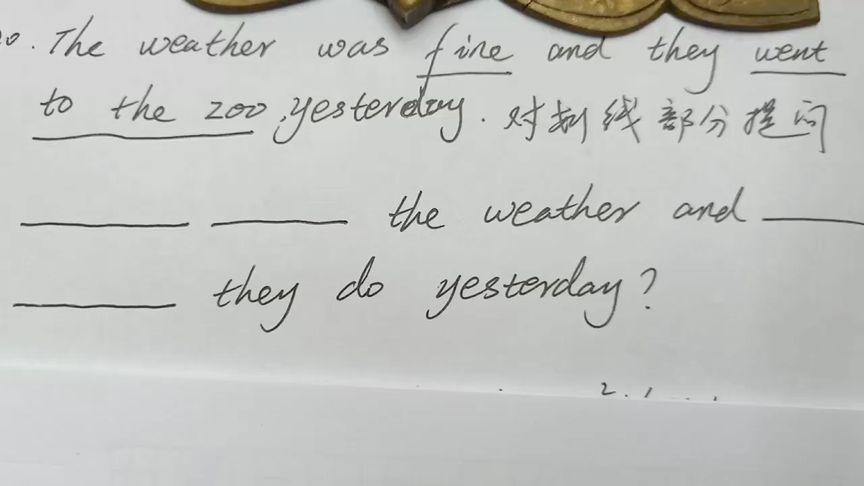 0. The weather was fine and they went
to the zoo, yesterday. 对划线部分提问
the weather and
they do yesterday?